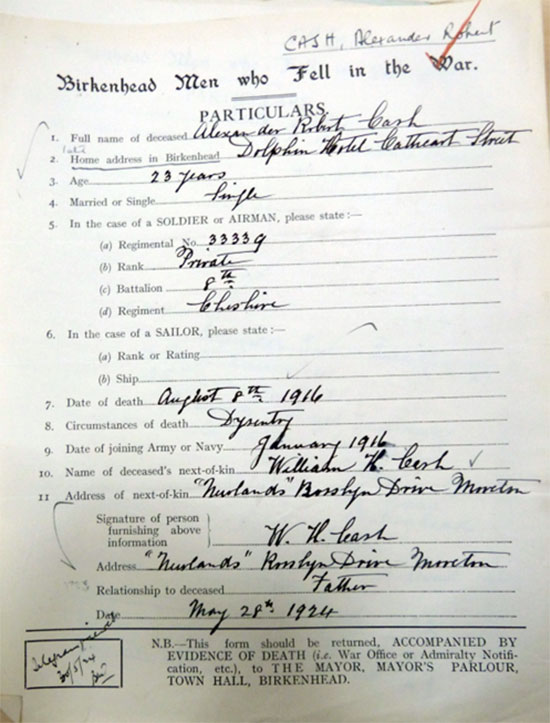 CASH, Alexander Robert
Birkenhead Men who Fell in the War.
PARTICULARS.
1. Full name of deceased Alexander Robert Cash
2. Home address in Birkenhead Dolphin Hotel Cathcart Street
3. Age 23 years
4. Married or Single Single
5. In the case of a SOLDIER or AIRMAN, please state :—
(a) Regimental No. 33339
(b) Rank Private
(c) Battalion 8th
(d) Regiment Cheshire
6. In the case of a SAILOR, please state :—
(a) Rank or Rating
(b) Ship
7. Date of death August 8th 1916
8. Circumstances of death Dysentry
9. Date of joining Army or Navy January 1916
10. Name of deceased's next-of-kin William H. Cash
11 Address of next-of-kin "Newlands" Rosslyn Drive Moreton
Signature of person
furnishing above
information W. H. Cash
Address "Newlands" Rosslyn Drive Moreton
Relationship to deceased Father
Date May 28th 1924
N.B.—This form should be returned, ACCOMPANIED BY
EVIDENCE OF DEATH (i.e. War Office or Admiralty Notifi-
cation, etc.), to THE MAYOR, MAYOR'S PARLOUR,
TOWN HALL, BIRKENHEAD.